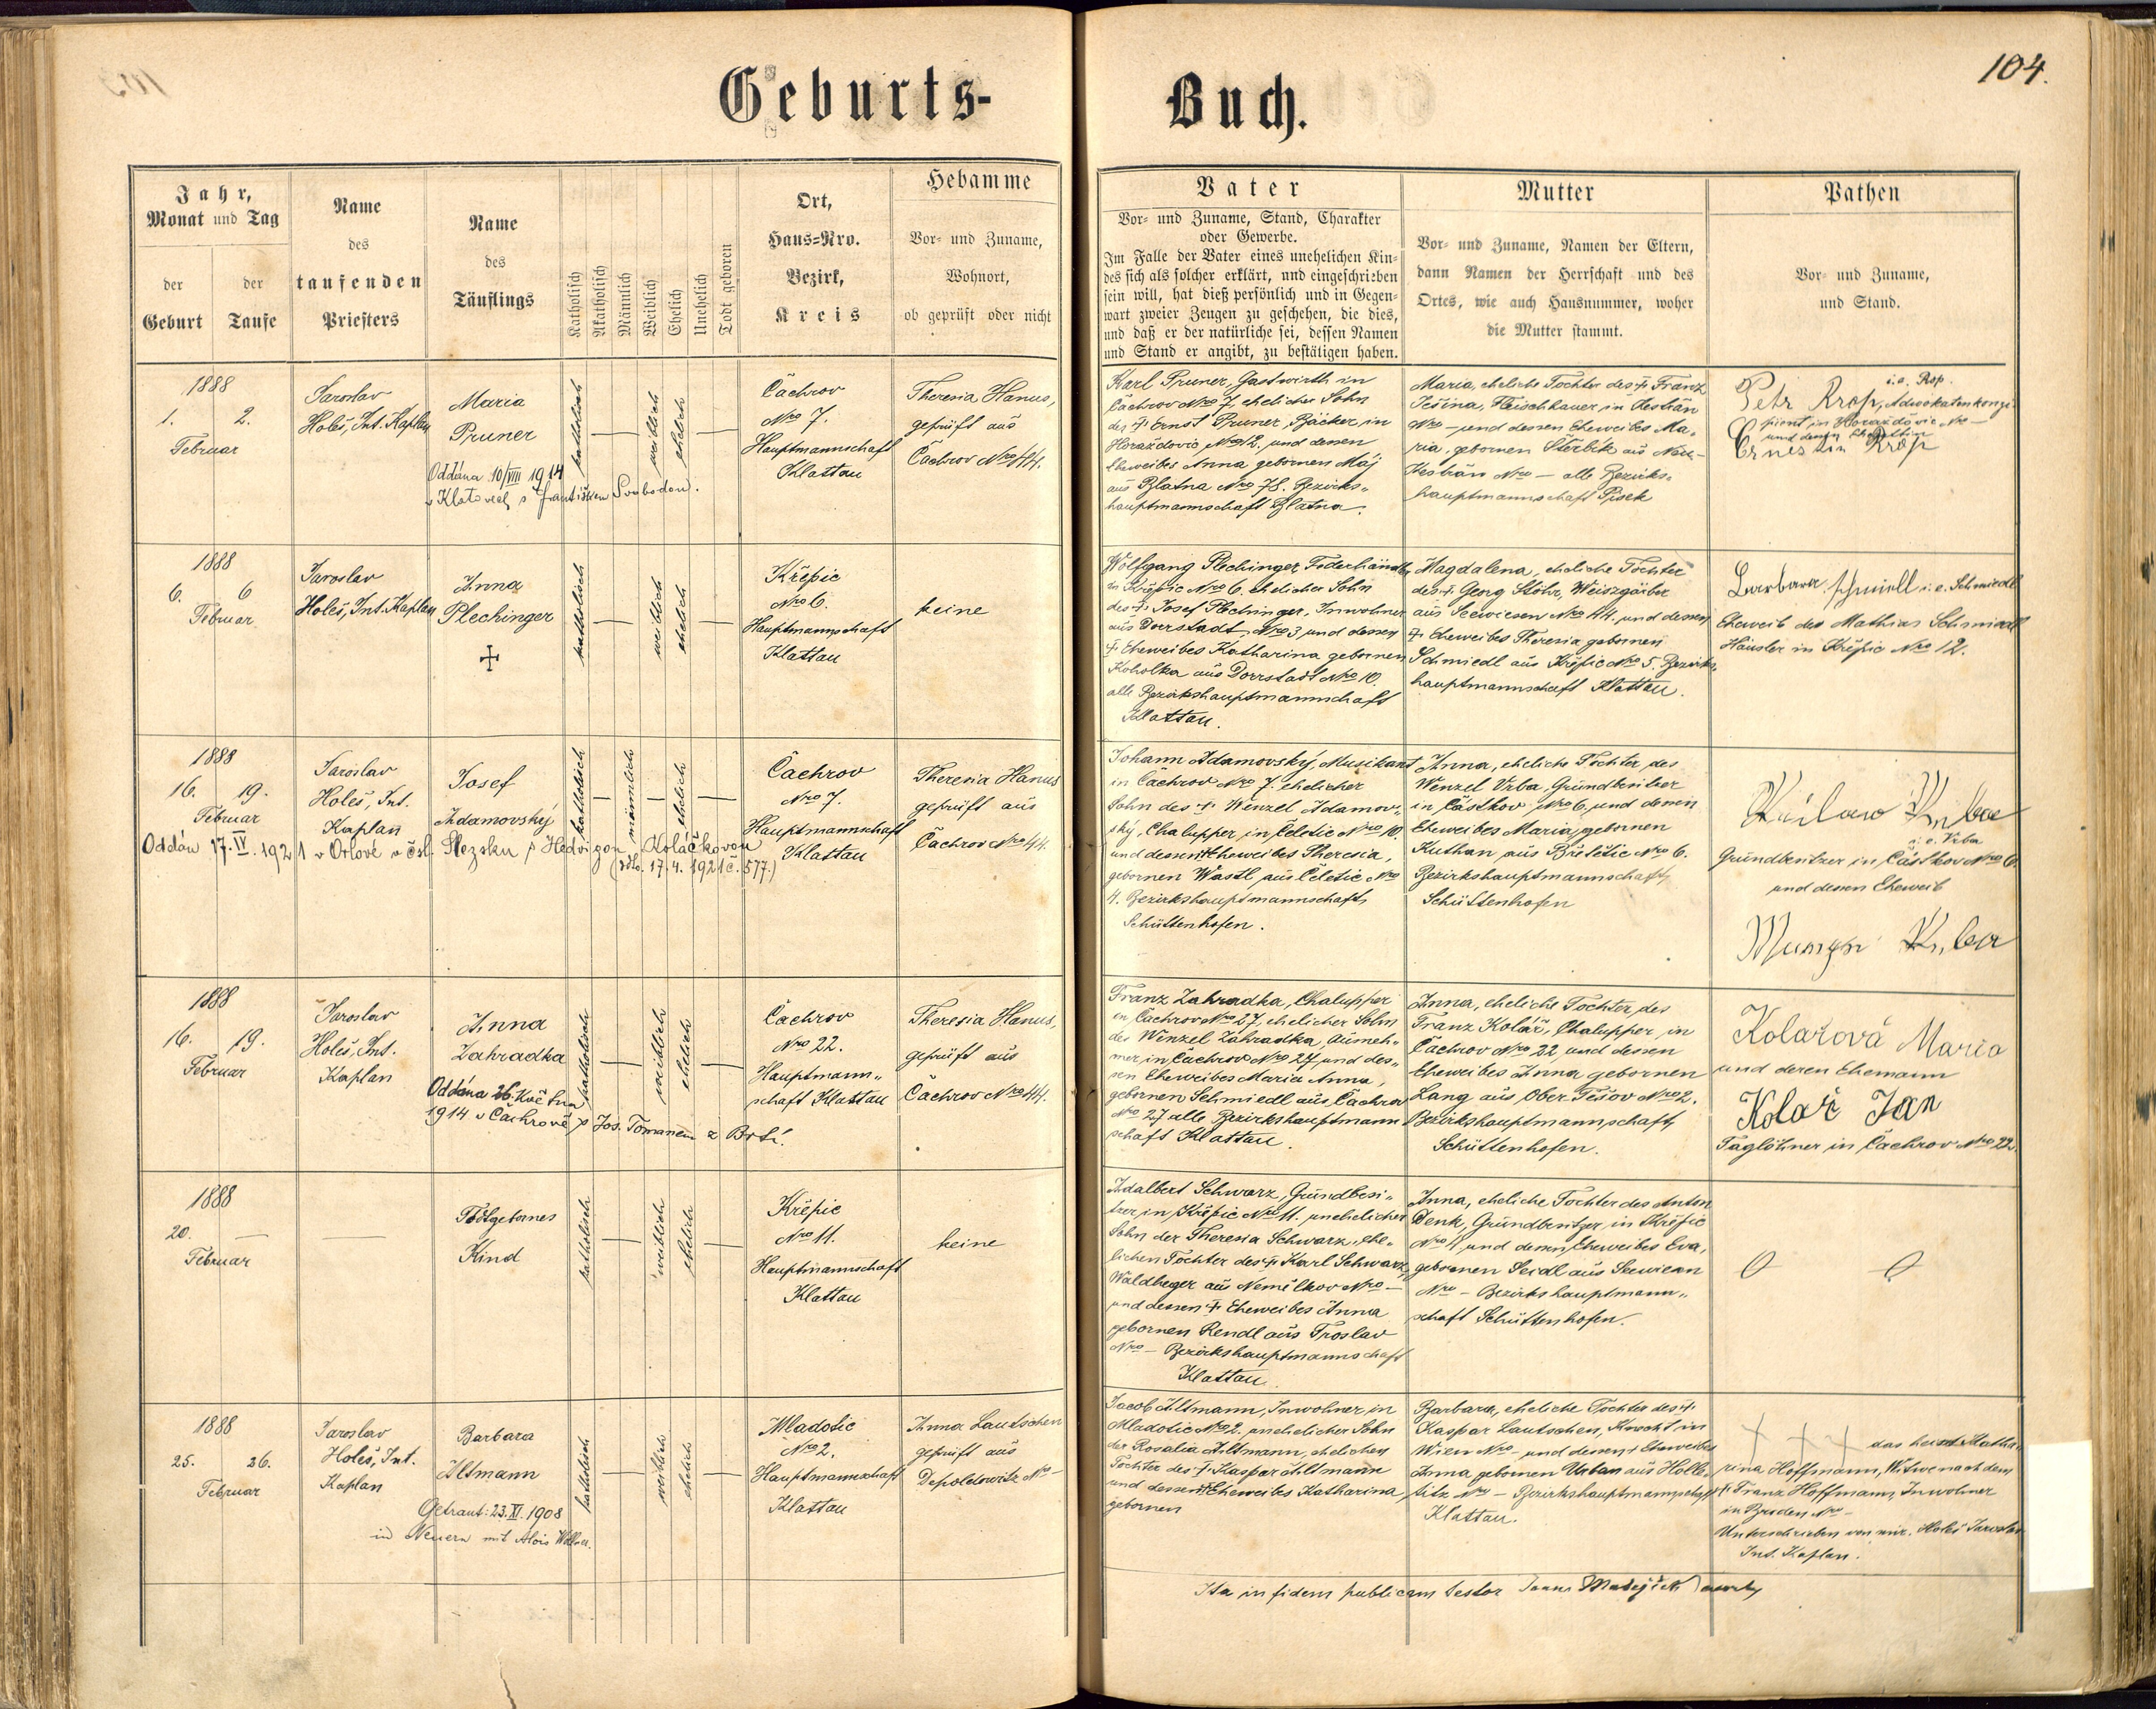 104.
Geburts-
Buch.
Jahr,
Monat und Tag
der
Geburt
der
Taufe
Name
des
taufenden
Priesters
Name
des
Täuflings
Katholisch
Akatholisch
Männlich
Weiblich
Ehelich
Unehelich
Todt geboren
Ort,
Haus=Nro.
Bezirk,
Kreis
Hebamme
Vor- und Zuname,
Wohnort,
ob geprüft oder nicht
Vater
Vor- und Zuname, Stand, Charakter
oder Gewerbe.
Im Falle der Vater eines unehelichen Kin=
des sich als solcher erklärt, und eingeschrieben
sein will, hat dieß persönlich und in Gegen=
wart zweier Zeugen zu geschehen, die dies,
und daß er der natürliche sei, dessen Namen
und Stand er angibt, zu bestätigen haben.
Mutter
Vor- und Zuname, Namen der Eltern,
dann Namen der Herrschaft und des
Ortes, wie auch Hausnummer, woher
die Mutter stammt.
Pathen
Vor- und Zuname,
und Stand.
1888
1. 2.
Februar
Jaroslav
Holeš, Int. Kaplan
Maria
Pruner
Oddána 10/VIII 1914
v Klatovech s Františkem Svobodou.
katholisch
weiblich
ehelich
Čachrov
Nro 7.
Hauptmannschaft
Klattau
Theresia Hanus,
geprüft aus
Čachrov Nro 44.
Karl Pruner, Gastwirth in
Čachrov Nro 7, ehelicher Sohn
des † Ernst Pruner, Bäcker in
Horažďovic Nro 12, und dessen
Eheweibes Anna gebornen Máj
aus Blatna Nro 78. Bezirks-
hauptmannschaft Blatna.
Maria, eheliche Tochter des † Franz
Ješina, Fleischhauer in Kestřan
Nro — und dessen Eheweibes Ma-
ria, gebornen Štěrbík aus Neu-
Kestřan Nro — alle Bezirks-
hauptmannschaft Pisek
i.e. Rop.
Petr Krop, Advokatenkonzi-
pient in Horažďovic Nro —
und dessen Ehegattin
Ernestin Krop
1888
6. 6
Februar
Jaroslav
Holeš, Int. Kaplan
Anna
Plechinger
katholisch
weiblich
ehelich
Křepic
Nro 6.
Hauptmannschaft
Klattau
keine
Wolfgang Plechinger Federhändler
in Křepic Nro 6. ehelicher Sohn
des † Josef Plechinger, Inwohner
aus Dorrstadt, Nro 3 und dessen
† Eheweibes Katharina gebornen
Koholka aus Dorrstadt Nro 10.
alle Bezirkshauptmannschaft
Klattau.
Magdalena, eheliche Tochter
des † Georg Stöhr, Weiszgärber
aus Seewiesen Nro 44. und dessen
† Eheweibes Theresia gebornen
Schmiedl aus Křepic Nro 5. Bezirks-
hauptmannschaft Klattau.
Barbara Schmiell i.e. Schmiedl
Eheweib des Mathias Schmiedl
Häusler in Křepic Nro 12.
1888
16. 19.
Februar
Jaroslav
Holeš, Int.
Kaplan
Josef
Adamovský
Oddán 17.IV.1921 v Orlové v čsl. Slezsku s Hedvigou Koláčkovou
(dto. 17.4.1921 č. 577.)
katholisch
männlich
ehelich
Čachrov
Nro 7.
Hauptmannschaft
Klattau
Theresia Hanus
geprüft aus
Čachrov Nro 44.
Johann Adamovský, Musikant
in Čachrov Nro 7. ehelicher
Sohn des † Wenzel Adamov-
ský, Chalupper in Čeletic Nro 10.
und dessen † Eheweibes Theresia,
gebornen Wastl aus Čeletic Nro
4. Bezirkshauptmannschaft
Schüttenhofen.
Anna, eheliche Tochter des
Wenzel Vrba, Grundbesitzer
in Částkov Nro 6, und dessen
Eheweibes Maria, gebornen
Kuthan aus Břetětic Nro 6.
Bezirkshauptmannschaft
Schüttenhofen
i.e. Vrba
Grundbesitzer in Částkov Nro 6.
und dessen Eheweib
1888
16. 19.
Februar
Jaroslav
Holeš, Int.
Kaplan
Anna
Zahradka
Oddána 26. Května
1914 v Čachrově s Jos. Tomanem z Brtí.
katholisch
weiblich
ehelich
Čachrov
Nro 22.
Hauptmann-
schaft Klattau
Theresia Hanus,
geprüft aus
Čachrov Nro 44.
Franz Zahradka, Chalupper
in Čachrov Nro 27, ehelicher Sohn
des Wenzel Zahradka, Ausneh-
mer in Čachrov Nro 27, und des-
sen Eheweibes Maria Anna,
gebornen Schmiedl aus Čachrov
Nro 27 alle Bezirkshauptmann-
schaft Klattau.
Anna, eheliche Tochter des
Franz Kolář, Chalupper in
Čachrov Nro 22 und dessen
Eheweibes Anna gebornen
Lang aus Ober Těšov Nro 2.
Bezirkshauptmannschaft
Schüttenhofen.
Kolařová Maria
und deren Ehemann
Kolař Jan
Taglöhner in Čachrov Nro 22.
1888
20. —
Februar
Todtgebornes
Kind
katholisch
weiblich
ehelich
Křepic
Nro 11.
Hauptmannschaft
Klattau
keine
Adalbert Schwarz, Grundbesi-
tzer in Křepic Nro 11. unehelicher
Sohn der Theresia Schwarz, ehe-
lichen Tochter des † Karl Schwarz,
Waldheger aus Nemilkov Nro —
und dessen † Eheweibes Anna
gebornen Rendl aus Froslav
Nro — Bezirkshauptmannschaft
Klattau.
Anna, eheliche Tochter des Anton
Denk, Grundbesitzer in Křepic
Nro 4 und dessen Eheweibes Eva,
gebornen Seidl aus Seewiesen
Nro — Bezirkshauptmann-
schaft Schüttenhofen.
0 0
1888
25. 26.
Februar
Jaroslav
Holeš, Int.
Kaplan
Barbara
Altmann
Getraut: 23.XI.1908
in Neuern mit Alois
katholisch
weiblich
ehelich
Mladotic
Nro 2.
Hauptmannschaft
Klattau
Anna Lautschen
geprüft aus
Depoldowitz Nro —
Jacob Altmann, Inwohner in
Mladotic Nro 2, unehelicher Sohn
der Rosalia Altmann, ehelichen
Tochter des † Kaspar Altmann
und dessen † Eheweibes Katharina
gebornen
Barbara, eheliche Tochter des †
Kaspar Lautschen, Knecht in
Wien Nro — und dessen † Eheweibes
Anna gebornen Urban aus Holle-
titz Nro — Bezirkshauptmannschaft
Klattau.
+ + + das heisst Katha-
rina Hoffmann, Witwe nach dem
† Franz Hoffmann, Inwohner
in Bruden Nro —
Unterschrieben von mir. Holeš Jaroslav
Int. Kaplan.
Ita in fidem publicam testor Joann Matějíček